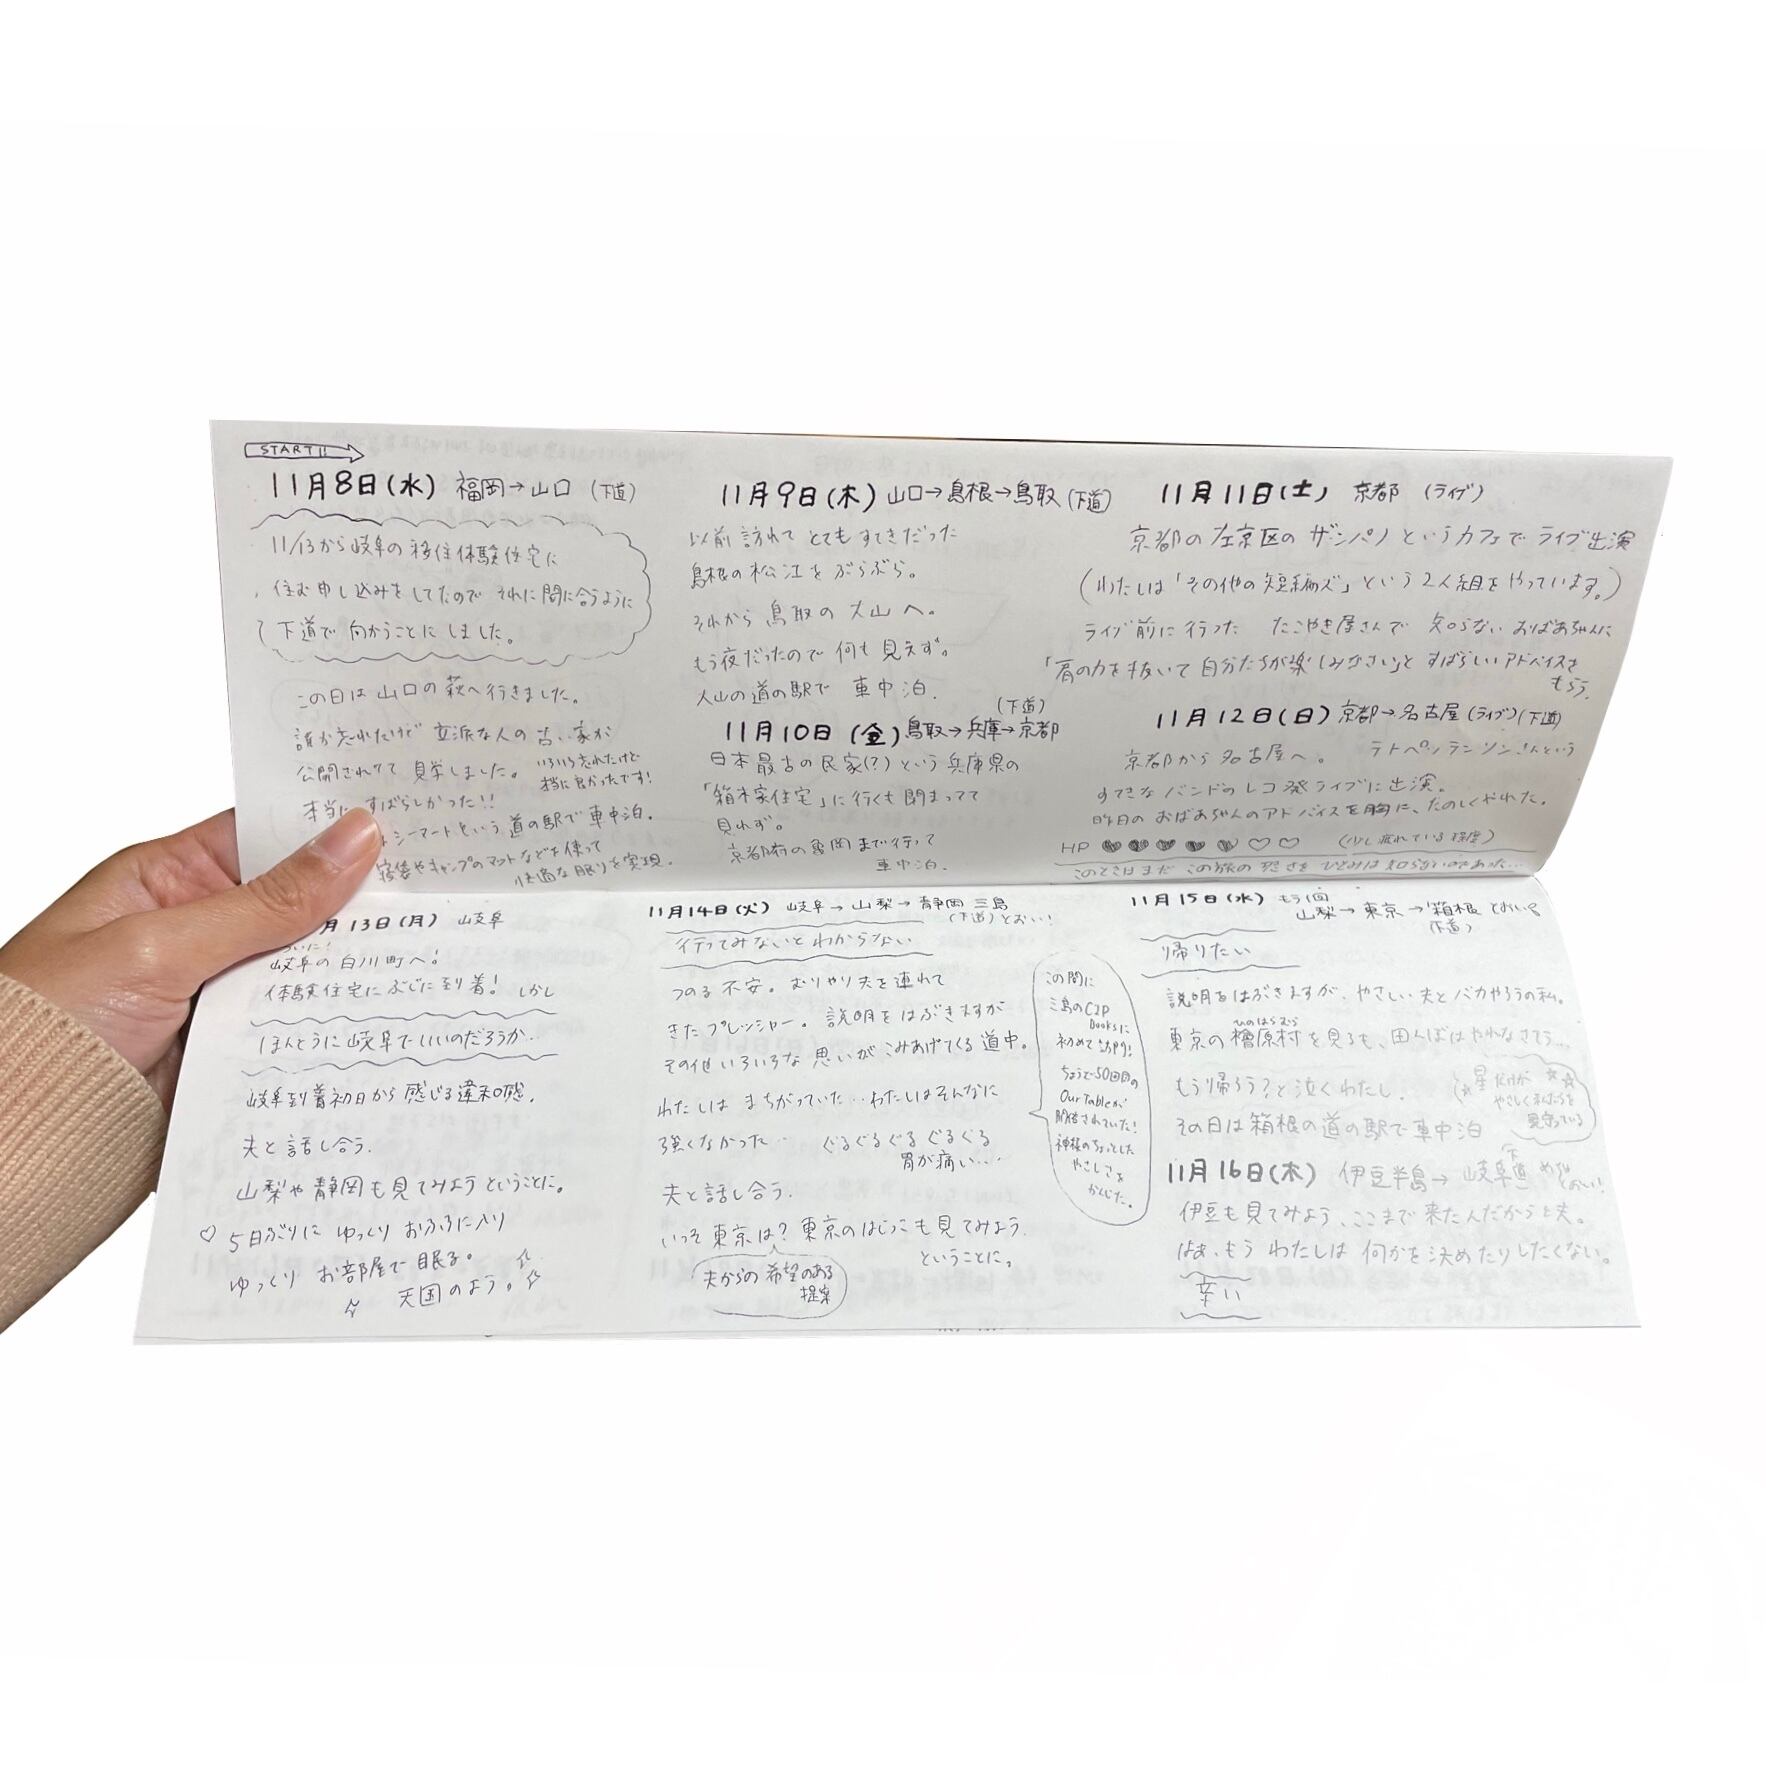 START!!
11月8日(水) 福岡→山口 (下道)
11/13から岐阜の移住体験住宅に
住む申し込みをしてたので それに間に合うように
下道で向かうことにしました。
この日は山口の萩へ行きました。
誰か忘れたけど 立派な人の古い家が
公開されてて 見学しました。
いろいろ忘れたけど
本当に良かったです!
本当にすばらしかった!!
シーマートという道の駅で車中泊。
寝袋やキャンプのマットなどを使って
快適な眠りを実現。
11月9日(木) 山口→島根→鳥取(下道)
以前訪れてとてもすてきだった
島根の松江をぶらぶら。
それから鳥取の大山へ。
もう夜だったので何も見えず。
大山の道の駅で 車中泊.
11月10日(金) 鳥取→兵庫→京都
(下道)
日本最古の民家(?)という兵庫県の
「箱木家住宅」に行くも閉まってて
見れず。
京都府の亀岡まで行って
車中泊.
11月11日(土) 京都 (ライブ)
京都の左京区のザンパノというカフェでライブ出演
(わたしは「その他の短編ズ」という2人組をやっています。)
ライブ前に行った たこやき屋さんで 知らないおばあちゃんに
「肩の力を抜いて自分たちが楽しみなさい」とすばらしいアドバイスを
もらう.
11月12日(日) 京都→名古屋(ライブ)(下道)
京都から名古屋へ。 テトペッテンソンさんという
すてきなバンドのレコ発ライブに出演。
昨日のおばあちゃんのアドバイスを胸に、たのしくやれた。
HP ♥♥♥♥♥♡♡ (少し疲れている程度)
このときはまだ この旅の恐さをひとみは知らないのであった…
月13日(月) 岐阜
ついに!
岐阜の白川町へ!
体験住宅にぶじに到着! しかし
ほんとうに岐阜でいいのだろうか…
岐阜到着初日から感じる違和感.
夫と話し合う.
山梨や静岡も見てみようということに。
♡5日ぶりにゆっくりおふろに入り
ゆっくりお部屋で眠る。
天国のよう。
11月14日(火) 岐阜→山梨→静岡 三島
(下道)とおい!
行ってみないとわからない
つのる不安。むりやり夫を連れて
きたプレッシャー。説明をはぶきますが
その他いろいろな思いがこみあげてくる道中。
わたしはまちがっていた…わたしはそんなに
強くなかった… ぐるぐるぐるぐるぐる
胃が痛い…
夫と話し合う.
いっそ東京は?東京のはじっこも見てみよう.
ということに。
夫からの希望のある
提案
この間に
三島のCRP
booksに
初めて訪問!
ちょうど50回目の
Our Tableが
開催されていた!
神様のちょっとした
やさしさを
かんじた。
11月15日(水) もう1回
山梨→東京→箱根 とおいる
(下道)
帰りたい
説明をはぶきますが、やさしい夫とバカやろうの私。
東京の檜原村を見るも、田んぼはやれなさそう…
ひのはらむら
もう帰ろう?と泣くわたし.
その日は箱根の道の駅で車中泊
星だけが
やさしく私たちを
見守っている
11月16日(木) 伊豆半島→岐阜 下道
伊豆も見てみよう、ここまで来たんだからと夫。
はぁ、もう わたしは 何かを決めたりしたくない。
辛い